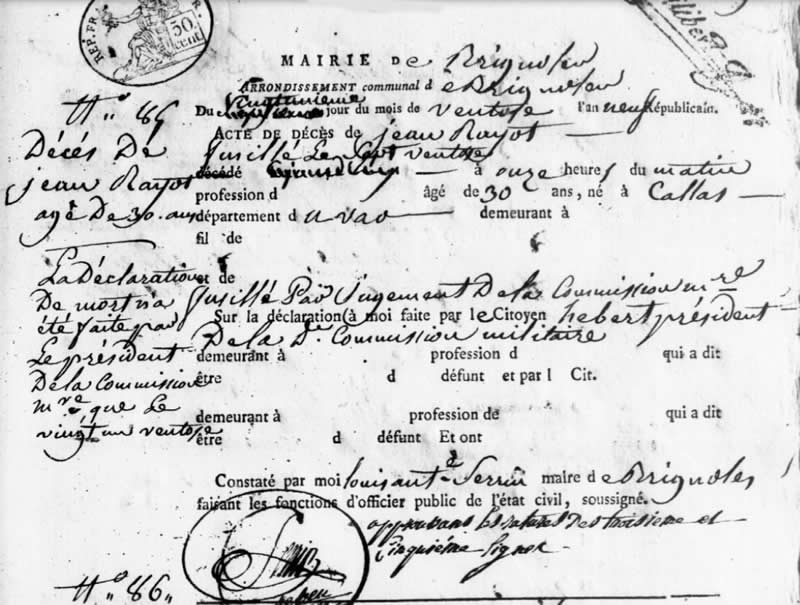 REP. FR.
50 cent
MAIRIE De Brignolles
ARRONDISSEMENT communal d e Brignolles
N.º 85
vingtunieme
Du jour du mois de ventose l'an neuf Républicain.
ACTE DE DÉCÈS de jean Rayol
Décés De
jean Rayol
agé De 30. ans
fusillé Le Sept ventose
décédé à onze heures du matin
profession d âgé de 30 ans, né à Callas
département d u var demeurant à
fil de
et de
La Déclaration
De mort n'a
été faite par
Le président
De la Commission
mre. que Le
vingt un ventose
fusillé Par Jugement De la Commission mre
Sur la déclaration à moi faite par le Citoyen hebert président
De la De. Commission militaire
demeurant à profession d qui a dit
être d défunt et par l Cit.
demeurant à profession de qui a dit
être d défunt Et ont
Constaté par moi louis ante. Serrin maire d e Brignoles
faisant les fonctions d'officier public de l'état civil, soussigné.
approuvant les ratures des troisieme et
Cinquiéme lignes
N.º 86